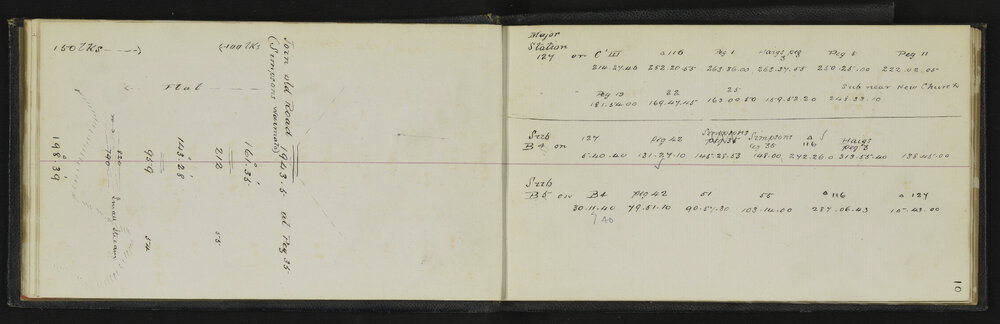 150 lks
(-100 lks
Flat
Join old Road 1943.5 at Peg 35
(Simpsons
161° 35'
212 55
143° 28'
959 54
820 Small stream
790
198° 39'
Major
Station
127 on C' III △116 Peg 1 Haigs peg 3 Peg 5 Peg 11
214.27.40 252.20.55 263.36.00 263.37.55 250.25.00 222.02.05
Sub near New Church
Peg 13 22 25
181.54.00 169.47.45 163.00.50 159.52.20 248.33.10
Sub
B4 on 127 Peg 42 Simpsons peg 35 Simpsons peg 36 △ 116 Haigs Peg 3
5.40.40 131.27.10 145.28.53 148.00 242.26.0 313.55.40 138.45.00
Sub
B5 on B4 peg 42 51 55 △116 △ 127
30.11.40 79.51.10 90.57.30 103.14.00 287.06.43 15.43.00
40
10